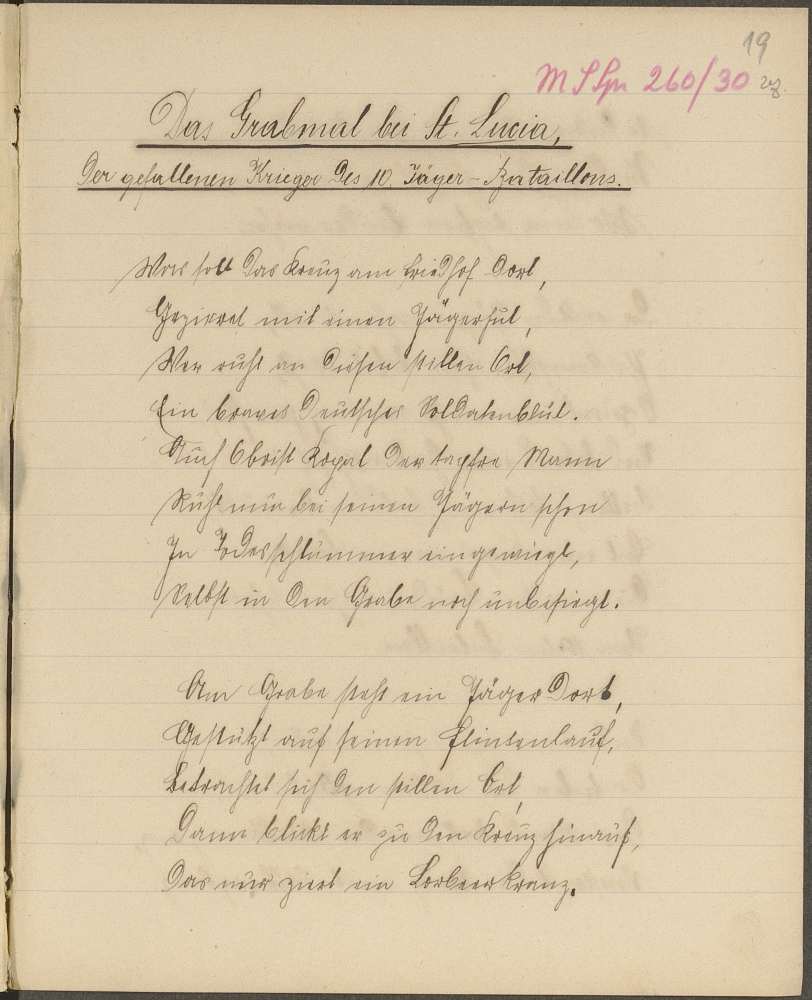 19
M S Spr 260/30
Das Grabmal bei St. Lucia,
Der gefallenen Krieger Des 10. Jäger-Bataillons.
Was soll Das Kreuz am Friedhof Dort,
Gezieret mit einen Jägerhut,
Wer ruht an Diesen stillen Ort,
Ein braves Deutsches Soldatenblut.
Auch Obrist Kopal Der tapfre Mann
Ruht nun bei seinen Jägern schon
In Todesschlummer eingewiegt,
Selbst in Den Grabe noch unbesiegt.
Am Grabe steht ein Jäger Dort,
Gestützt auf seinen Flintenlauf,
Betrachtet sich Den stillen Ort
Dann blickt er zu Den Kreuz hinauf,
Das nur ziert ein Lorbeerkranz.